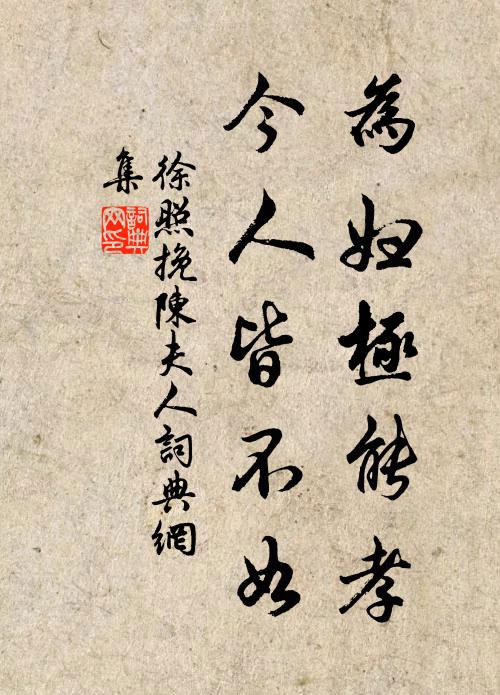 為妇極能孝
今人皆不如
徐照挽陳夫人詞典網
集
詞典
网印